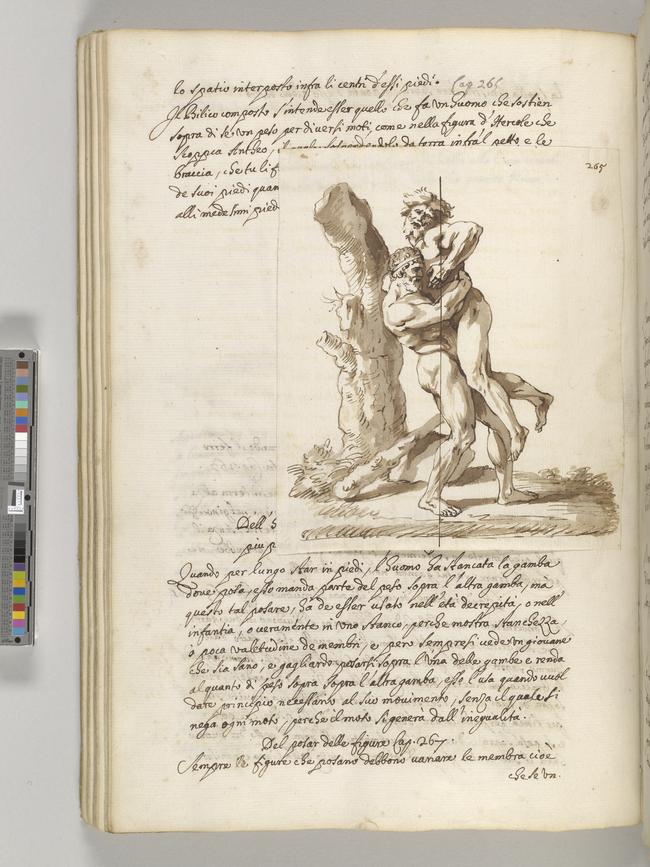 lo spatio interposto infra li centri d'essi piedi. Cap 265
Il Bilico composto s'intende esser quello che fa vn huomo che sostien
sopra di se vn peso per diversi moti, come nella figura d'Hercole che
scoppia Antheo, il quale sospendendolo da terra infra'l petto e le
braccia, che tu li f
de suoi piedi quan
alli medesimi pied
265
Dell' S
piu p
Quando per lungo star in piedi, l'huomo ha stancata la gamba
doue posa, esso manda parte del peso sopra l'altra gamba, ma
questo tal posare, ha de esser usato nell'età decrepita, o nell'
infantia, o veramente in vno stanco, perche mostra stanchezza,
o poca valetudine de membri, e però sempre si vede vn giouane
che sia sano, e gagliardo posarsi sopra l'vna delle gambe e se da
alquanto di peso sopra sopra l'altra gamba, esso l'usa quando vuol
dare principio necessario al suo mouimento, senza il quale si
nega ogni moto, perche il moto si genera dall' inequalità.
Del posar delle figure Cap. 267.
Sempre le figure che posano debbono variare le membra cioè
che se vn.